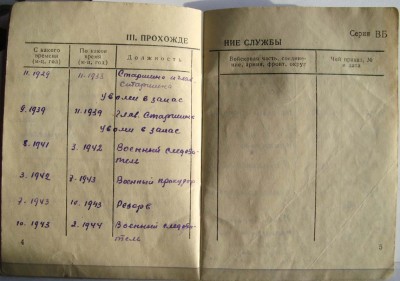 III. ПРОХОЖДЕ
С какого времени (м-ц, год)
По какое время (м-ц, год)
Должность
11.1929 11.1933 Старшина
Старшина
Уволен в запас
9.1939 11.1939 Глав. Старшина
Уволен в запас
8.1941 3.1942 Военный следова-
тель
7.1943 Военный прокурор
7.1943 10.1943 Резерв
10.1943 2.1944 Военный следова-
тель
4
НИЕ СЛУЖБЫ
Серия ВБ
Войсковая часть, соединение, армия, фронт, округ
Чей приказ, № и дата
5